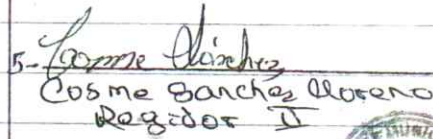 5- Cosme Sánchez
Cosme Sanchez Moreno
Regidor II